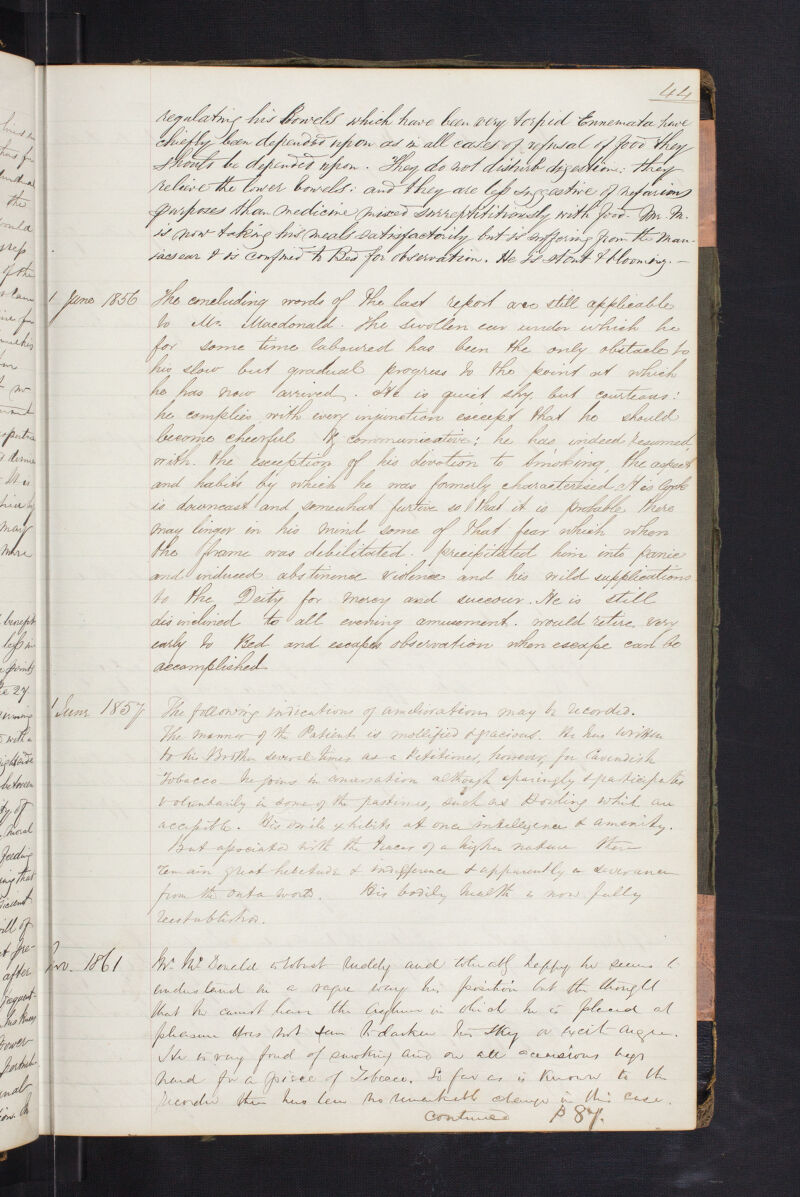 44
regulating his Bowels which have been very torpid Ennemata have
chiefly been depended upon as in all cases of refusal of food they
should be depended upon. They do not disturb digestion: they
relieve the lower bowels: and they are less suggestive of nefarious
purposes than medicine mixed surreptitiously with food. Mr. M.
is now taking his meals satisfactorily but is suffering from the Man-
iacs ear & is confined to Bed for observation. He is stout & blooming. —
1 June 1856 The concluding words of the last report are still applicable
to Mr. Macdonald. The swollen ear under which he
for some time laboured has been the only obstacle to
his slow but gradual progress to the point at which
he has now arrived. He is quiet shy but courteous:
he complies with every injunction except that he should
become cheerful & communicative: he has indeed resumed
with the exception of his devotion to Smoking, the aspect
and habits by which he was formerly characterised. His eye
is downcast and somewhat furtive so that it is probable there
may linger in his mind some of that fear which when
the frame was debilitated precipitated him into panic
and induced abstinence violence and his wild supplications
to the Deity for mercy and succour. He is still
disinclined to all evening amusement. would retire very
early to Bed and escapes observation when escape can be
accomplished
1 June 1857 The following indications of amelioration may be recorded.
The manner of the Patient is mollified & gracious. He has written
to his Brother several times as a Petitioner, however, for Cavendish
Tobacco. He joins in conversation although sparingly & participates
voluntarily in some of the pastimes, such as Bowling which are
accessible. His smile exhibits at once intelligence & amenity.
But associated with the traces of a higher nature there
remain great hebetude & indifference & apparently a severance
from the outer world. His bodily health is now fully
reestablished.
Nov. 1861 Mr. McDonald is robust ruddy and tolerably happy he seems to
understand in a vague way his position but the thought
that he cannot leave the Asylum in which he is placed at
pleasure does not seem to darken his sky or excite anger.
He is very fond of smoking and on all occasions begs
hard for a piece of Tobacco. So far as is known to the
recorder there has been no remarkable change in this case.
continued P 87.